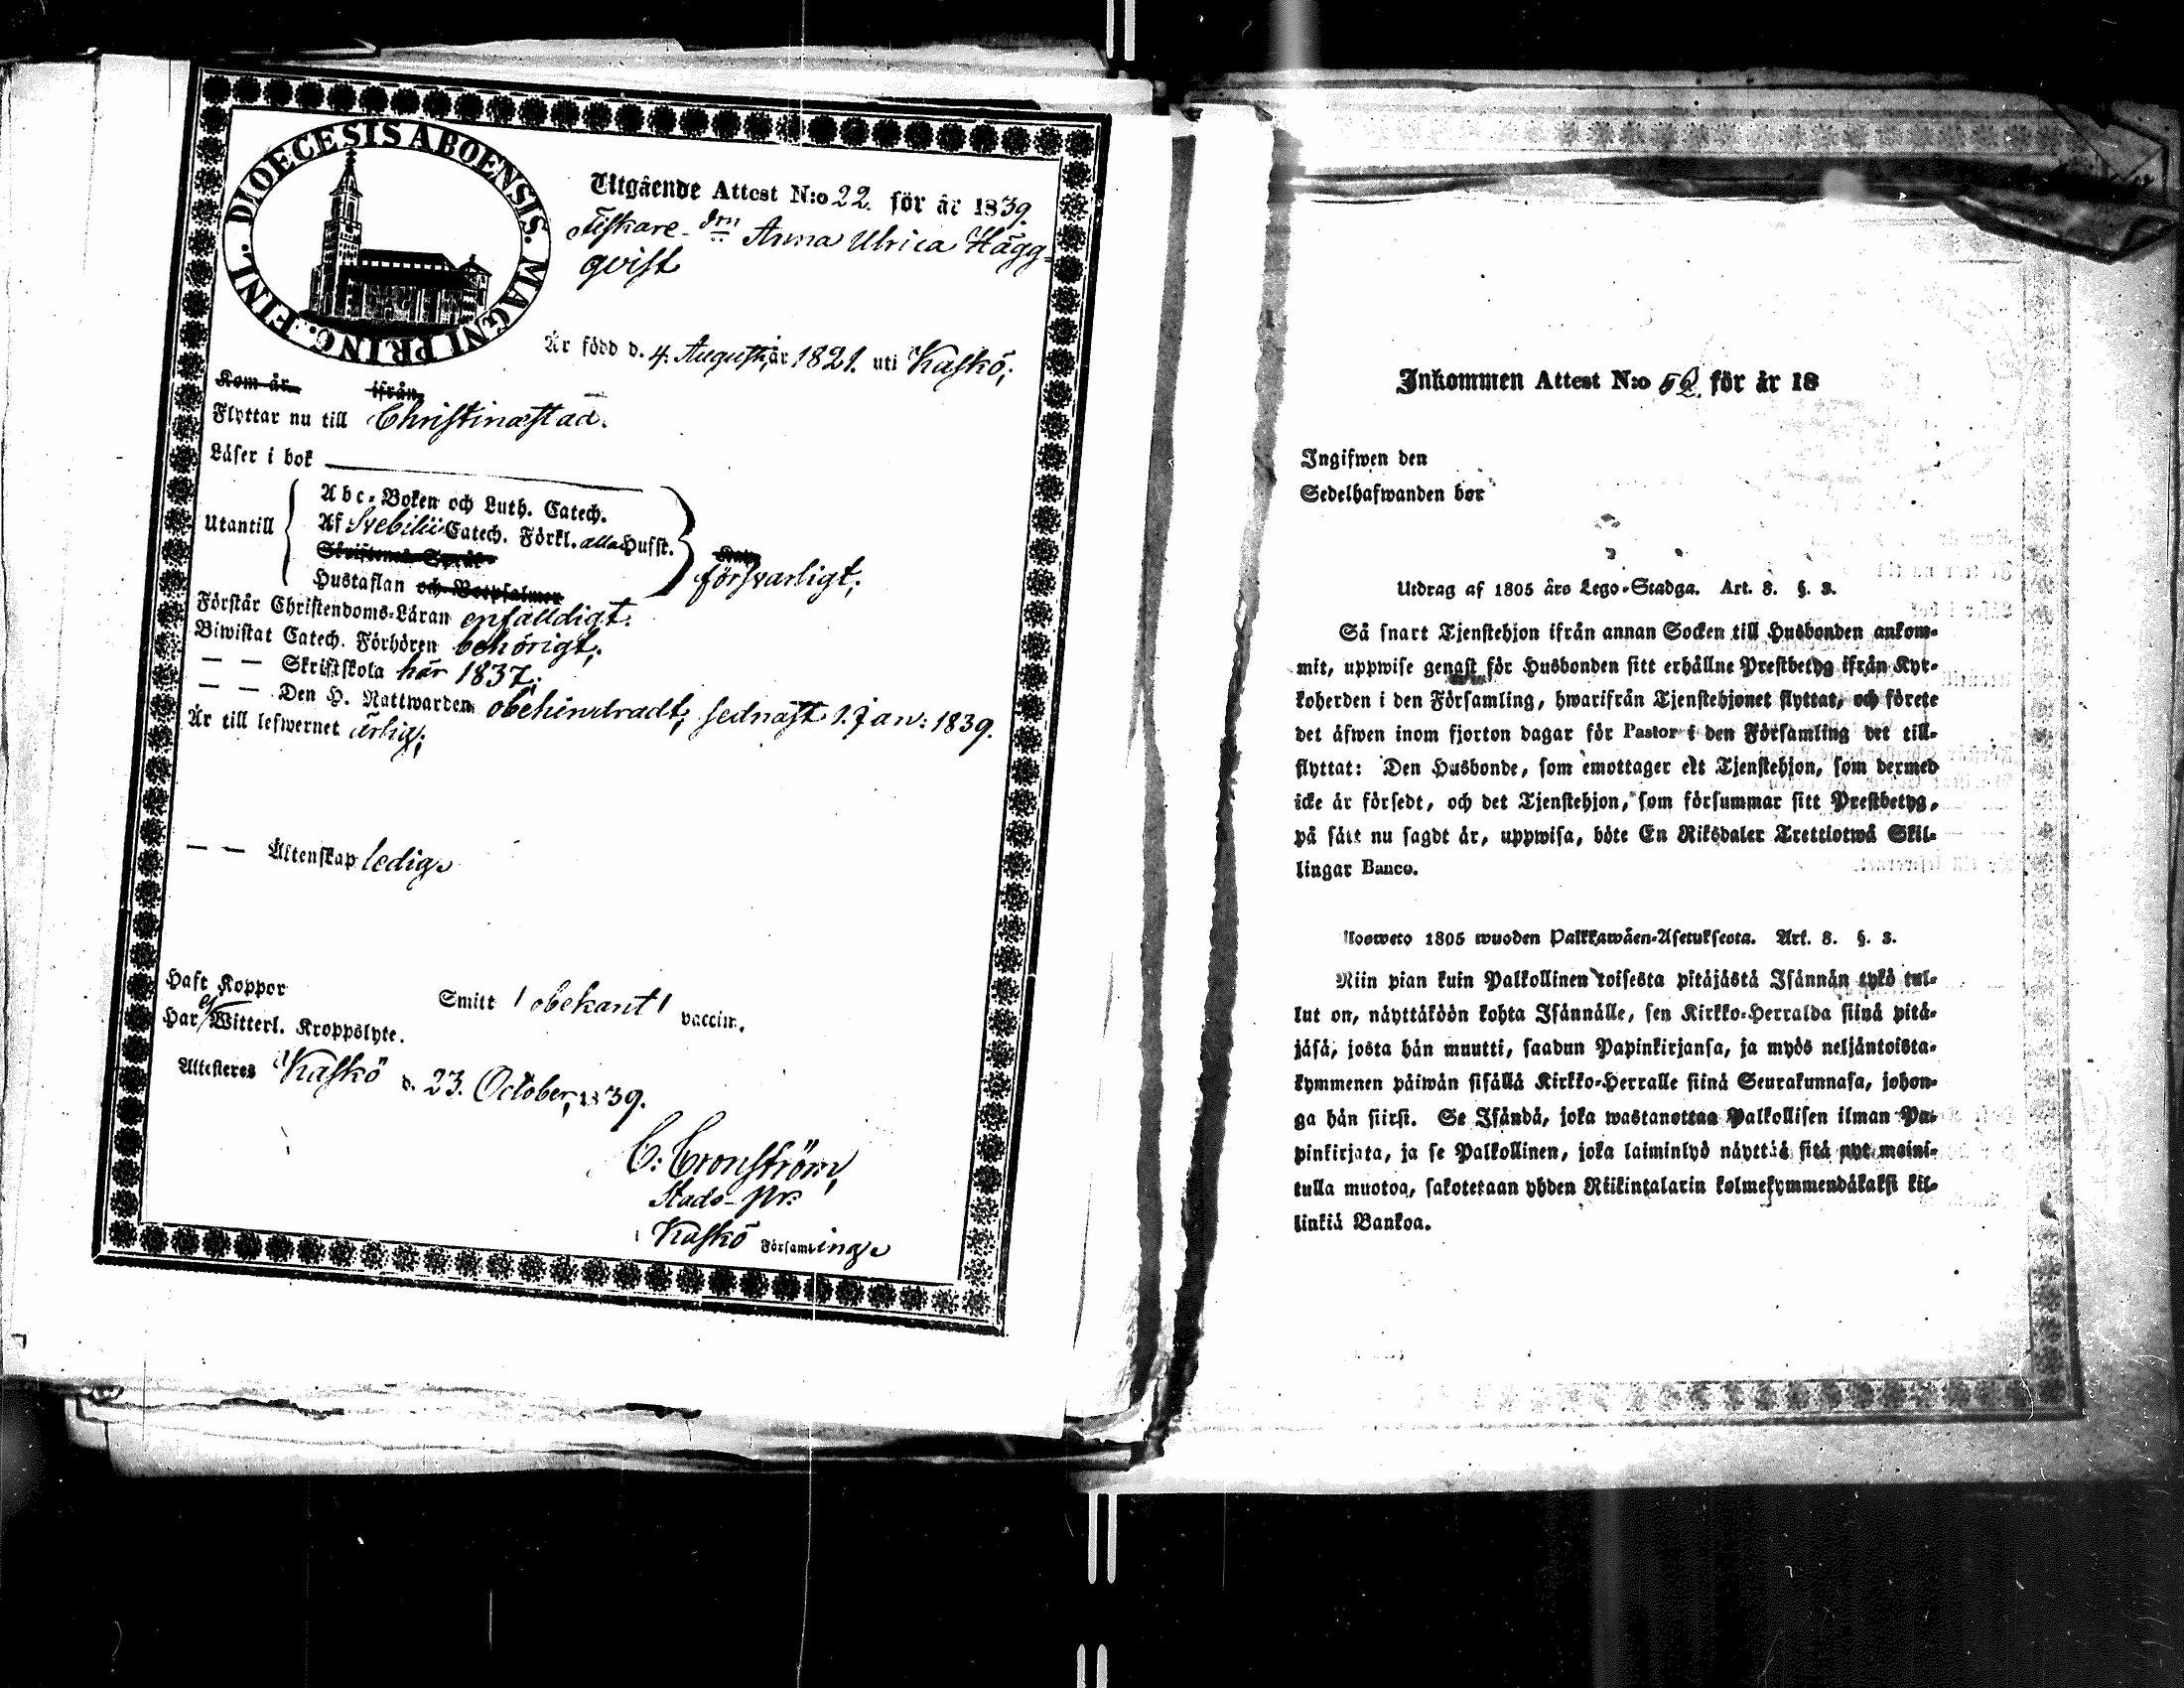 DIOECESIS ABOENSIS. MAGNI PRINC. FINL.
Utgående Attest N:o 22. för år 1839.
Fiskare-drn Anna Ulrica Hägg-
qvist
Är född d. 4. Augusti, år 1821. uti Kaskö;
Kom år ifrån
Flyttar nu till Christinæstad.
Läser i bok
Utantill
Abc-Boken och Luth. Catech.
Af Svebilii Catech. Förkl. alla Hufst.
Skriftenes Språk
Hustaflan och Botpsalmer
försvarligt;
Förstår Christendoms-Läran enfalldigt.
Biwistat Catech. Förhören behörigt;
— — Skriftskola här 1837;
— — Den H. Nattwarden obehindradt; sednast 1. Jan: 1839.
Är till lefwernet ärlig;
— — Äktenskap ledig.
Haft Koppor Smitt / obekant / vaccin.
Har ej Witterl. Kroppslyte.
Attesteres Kaskö d. 23. October, 1839.
C: Cronström,
Stads-Pr.
i Kaskö Församling.
Inkommen Attest N:o 52. för år 18
Ingifwen den
Sedelhafwanden bor
Utdrag af 1805 års Lego-Stadga. Art. 8. §. 3.
Så snart Tjenstehjon ifrån annan Socken till Husbonden ankom-
mit, uppwise genast för Husbonden sitt erhållne Prestbetyg ifrån Kyr-
koherden i den Församling, hwarifrån Tjenstehjonet flyttat, och förete
det äfwen inom fjorton dagar för Pastor i den Församling det till-
flyttat: Den Husbonde, som emottager ett Tjenstehjon, som dermed
icke är försedt, och det Tjenstehjon, som försummar sitt Prestbetyg,
på sätt nu sagdt är, uppwisa, böte En Riksdaler Trettiotwå Skil-
lingar Banco.
Uosweto 1805 wuoden Palkkawäen-Asetuksesta. Art. 8. §. 3.
Niin pian kuin Palkollinen toisesta pitäjästä Isännän tykö tul-
lut on, näyttäköön kohta Isännälle, sen Kirkko-Herralda siinä pitä-
jäsä, josta hän muutti, saadun Papinkirjansa, ja myös neljäntoista-
kymmenen päiwän sisällä Kirkko-Herralle siinä Seurakunnasa, johon-
ga hän siirsi. Se Isändä, joka wastanottaa Palkollisen ilman Pa-
pinkirjata, ja se Palkollinen, joka laiminlyö näyttää sitä nyt maini-
tulla muotoa, sakotetaan yhden Riikintalarin kolmekymmendäkaksi kil-
linkiä Bankoa.